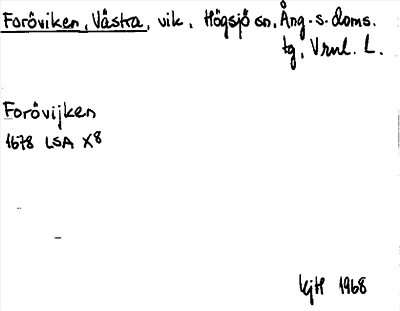 Foröviken, Västra, vik, Högsjö sn, Ång. s. doms.
tg, Vrnl. L.
Forövijken
1678 LSA X8
KjH 1968